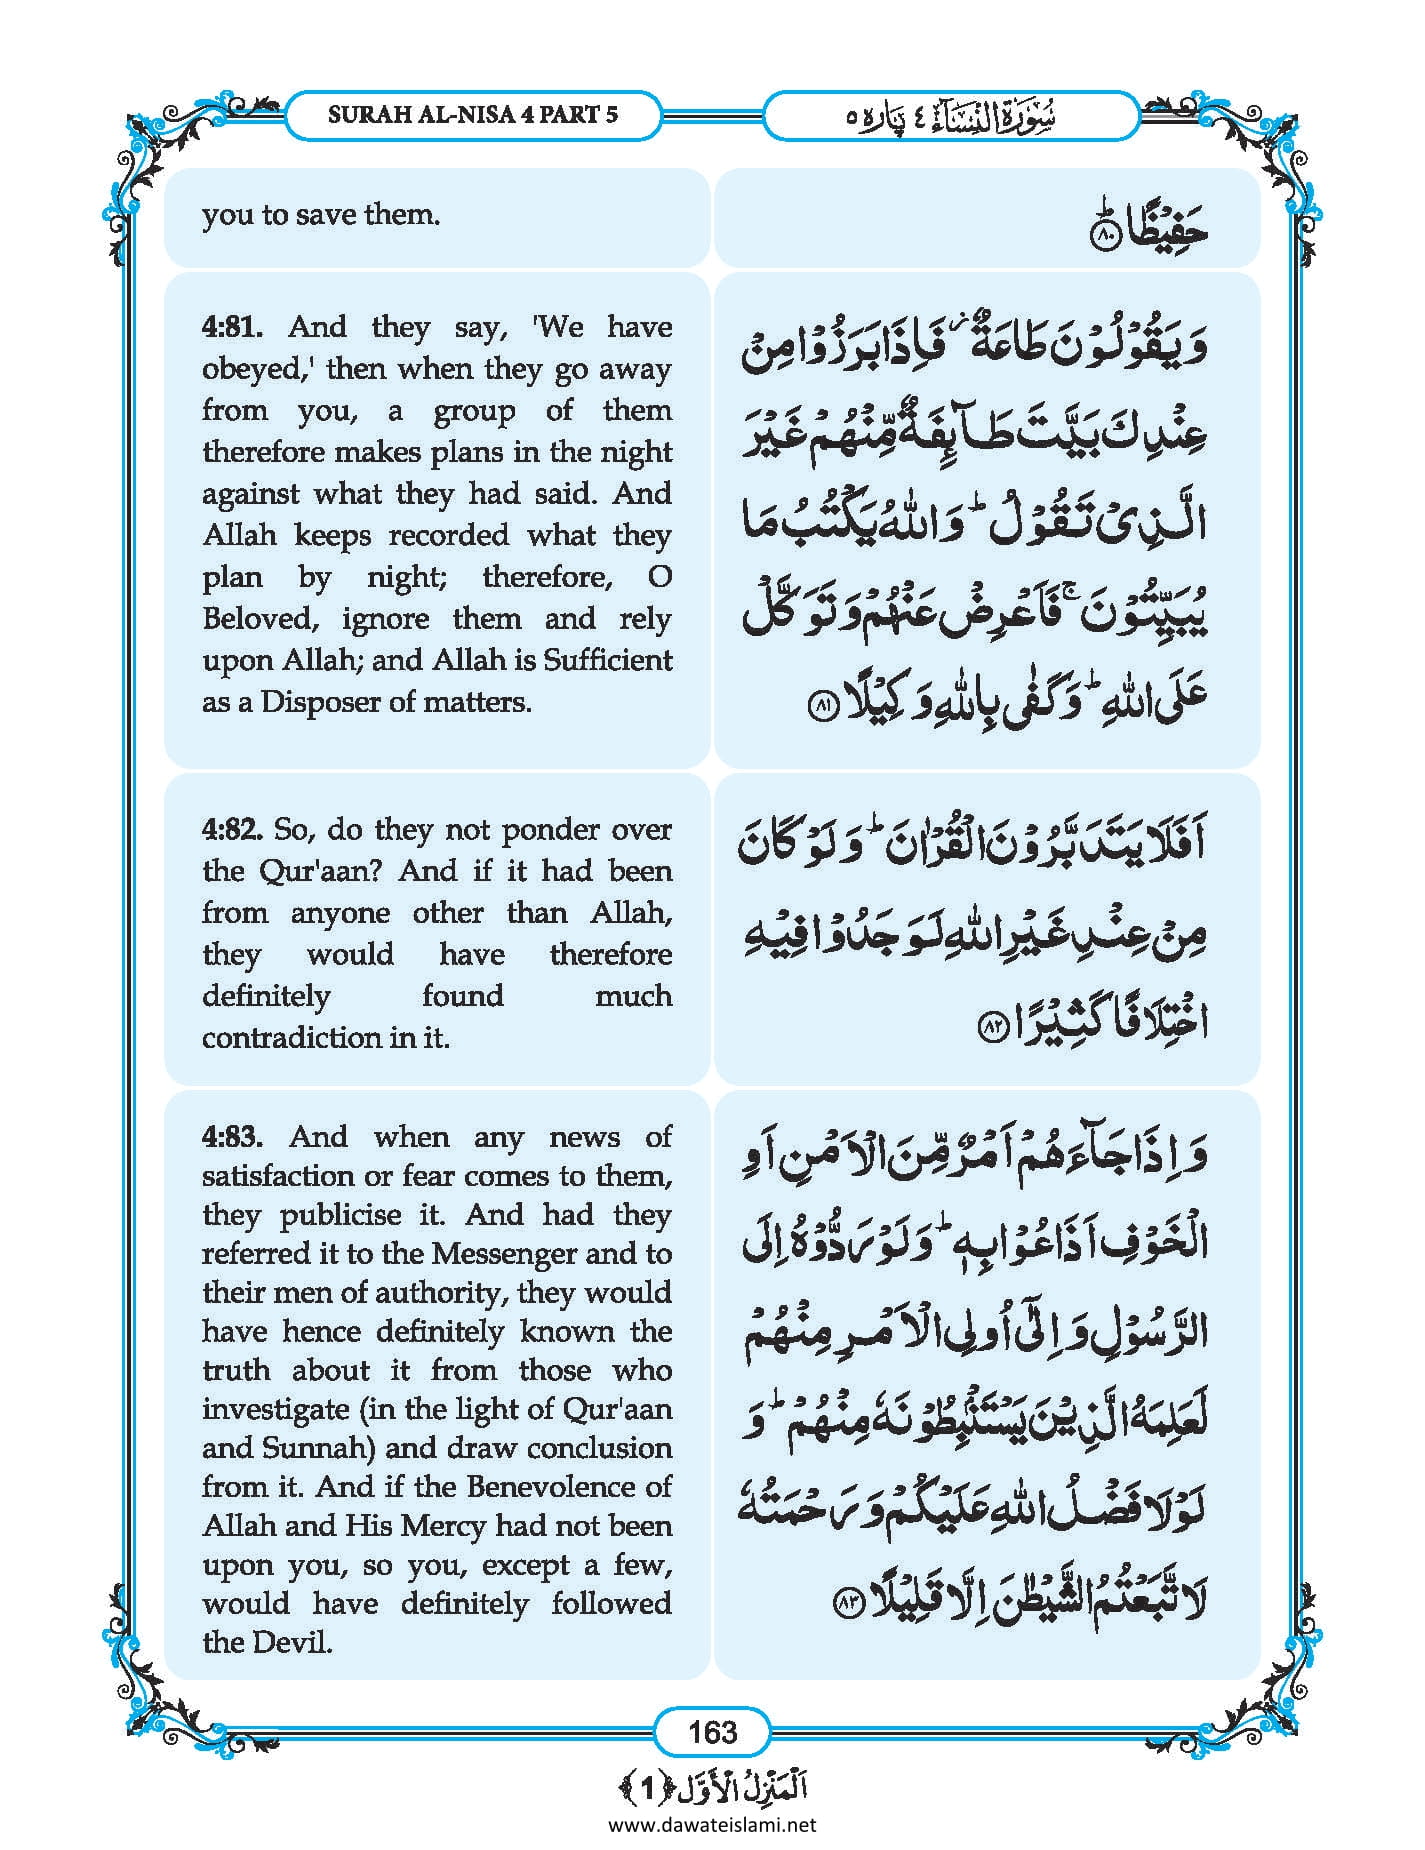 SURAH AL-NISA 4 PART 5
سُوْرَۃُ النِّسَآء ٤ پَارہ ٥
you to save them.
حَفِیْظًا ؕ﴿۸۰﴾
4:81. And they say, 'We have
obeyed,' then when they go away
from you, a group of them
therefore makes plans in the night
against what they had said. And
Allah keeps recorded what they
plan by night; therefore, O
Beloved, ignore them and rely
upon Allah; and Allah is Sufficient
as a Disposer of matters.
وَ یَقُوْلُوْنَ طَاعَۃٌ ۫ فَاِذَا بَرَزُوْا مِنْ
عِنْدِکَ بَیَّتَ طَآئِفَۃٌ مِّنْہُمْ غَیْرَ
الَّذِیْ تَقُوْلُ ؕ وَاللہُ یَکْتُبُ مَا
یُبَیِّتُوْنَ ۚ فَاَعْرِضْ عَنْہُمْ وَتَوَکَّلْ
عَلَی اللہِ ؕ وَکَفٰی بِاللہِ وَکِیْلًا ﴿۸۱﴾
4:82. So, do they not ponder over
the Qur'aan? And if it had been
from anyone other than Allah,
they would have therefore
definitely found much
contradiction in it.
اَفَلَا یَتَدَبَّرُوْنَ الْقُرْاٰنَ ؕ وَ لَوْ کَانَ
مِنْ عِنْدِ غَیْرِ اللہِ لَوَجَدُوْا فِیْہِ
اخْتِلَافًا کَثِیْرًا ﴿۸۲﴾
4:83. And when any news of
satisfaction or fear comes to them,
they publicise it. And had they
referred it to the Messenger and to
their men of authority, they would
have hence definitely known the
truth about it from those who
investigate (in the light of Qur'aan
and Sunnah) and draw conclusion
from it. And if the Benevolence of
Allah and His Mercy had not been
upon you, so you, except a few,
would have definitely followed
the Devil.
وَ اِذَا جَآءَہُمْ اَمْرٌ مِّنَ الْاَمْنِ اَوِ
الْخَوْفِ اَذَاعُوْا بِہٖ ؕ وَلَوْ رَدُّوْہُ اِلَی
الرَّسُوْلِ وَ اِلٰۤی اُولِی الْاَمْرِ مِنْہُمْ
لَعَلِمَہُ الَّذِیْنَ یَسْتَنْۢبِطُوْنَہٗ مِنْہُمْ ؕ وَ
لَوْلَا فَضْلُ اللہِ عَلَیْکُمْ وَ رَحْمَتُہٗ
لَاتَّبَعْتُمُ الشَّیْطٰنَ اِلَّا قَلِیْلًا ﴿۸۳﴾
163
اَلْمَنْزِلُ الْاَوَّل ﴿1﴾
www.dawateislami.net